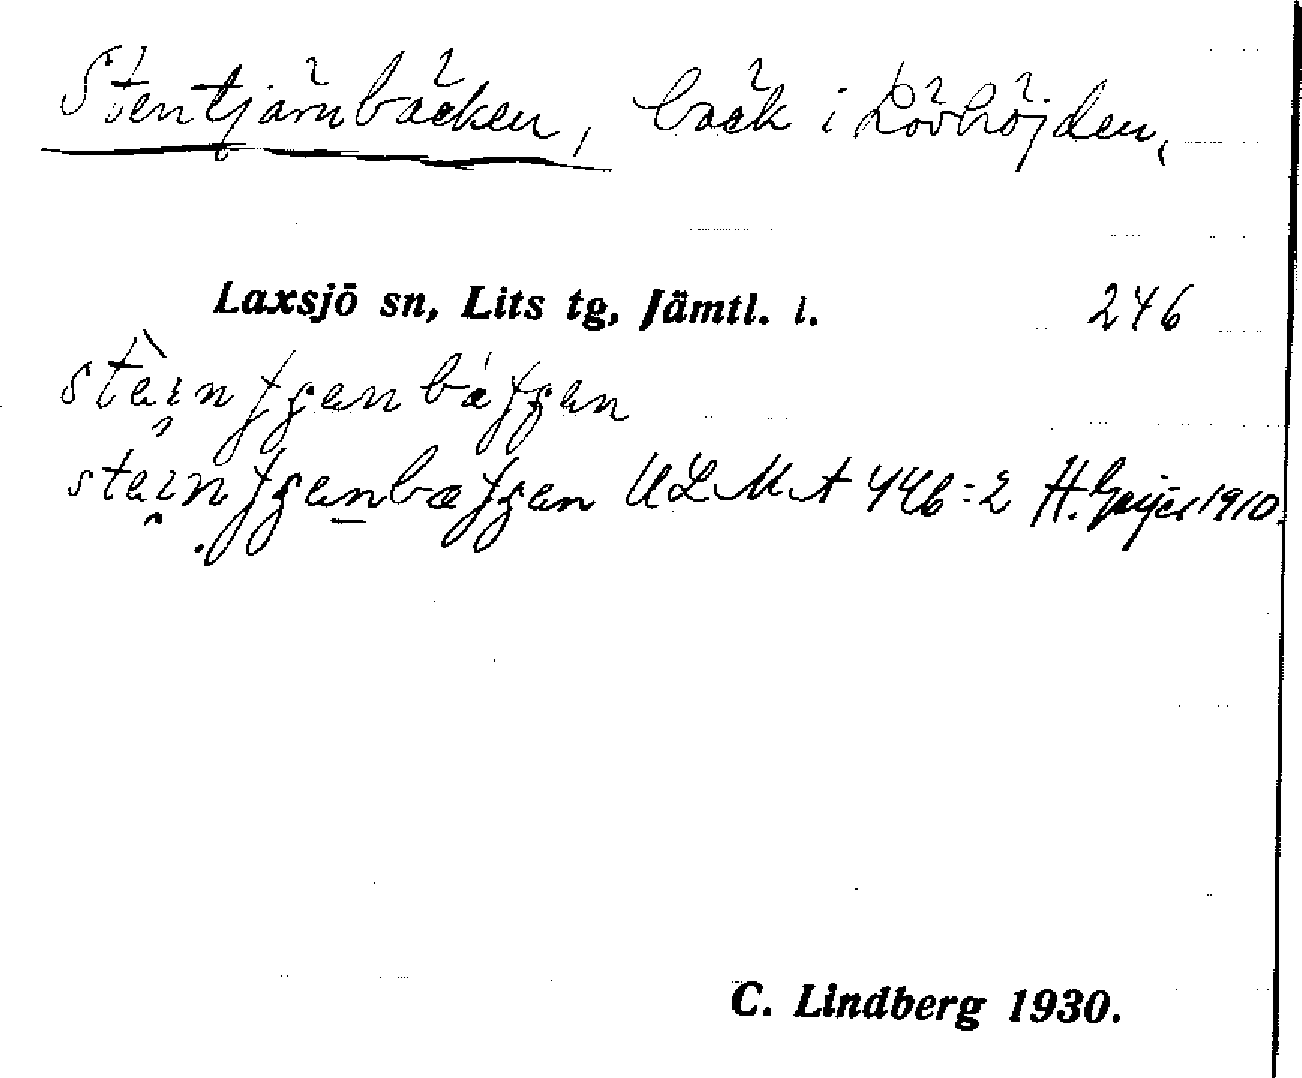 Stentjärnbäcken, bäck i Lövhöjden,
Laxsjö sn, Lits tg, Jämtl. l. 246
ULMA 446:2 H. Geijer 1910.
C. Lindberg 1930.